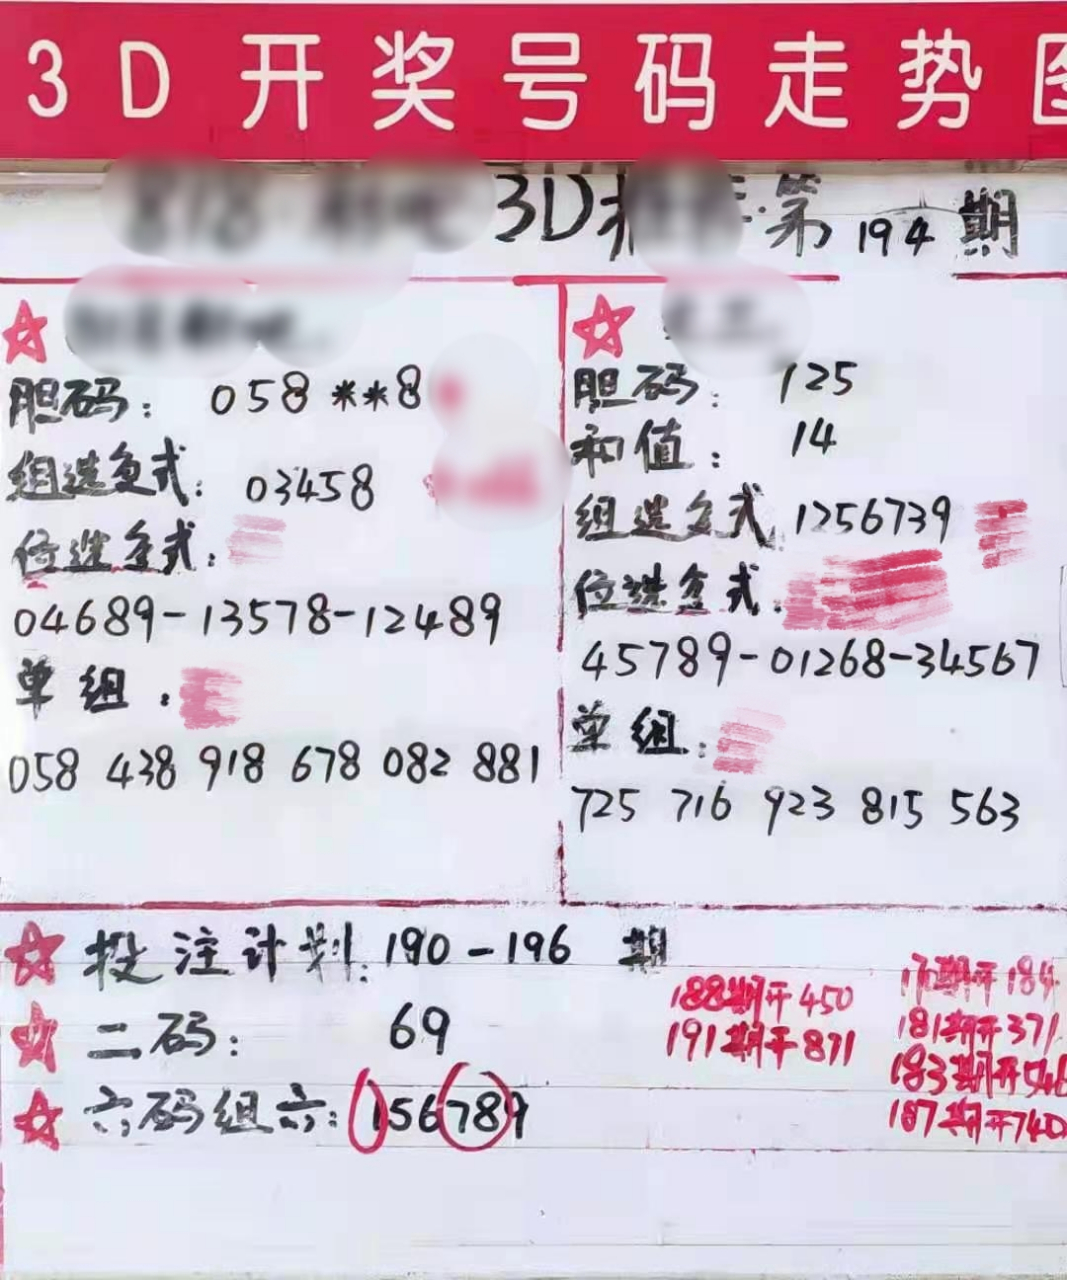 3D开奖号码走势图
3D 第194期
胆码: 058 **8
组选复式: 03458
位选复式:
04689-13578-12489
单组:
058 438 918 678 082 881
胆码: 125
和值: 14
组选复式: 1256739
位选复式:
45789-01268-34567
单组:
725 716 923 815 563
投注计划: 190-196 期
二码: 69
六码组六: 156789
188期开450
191期开871
181期开371
183期开546
187期开740